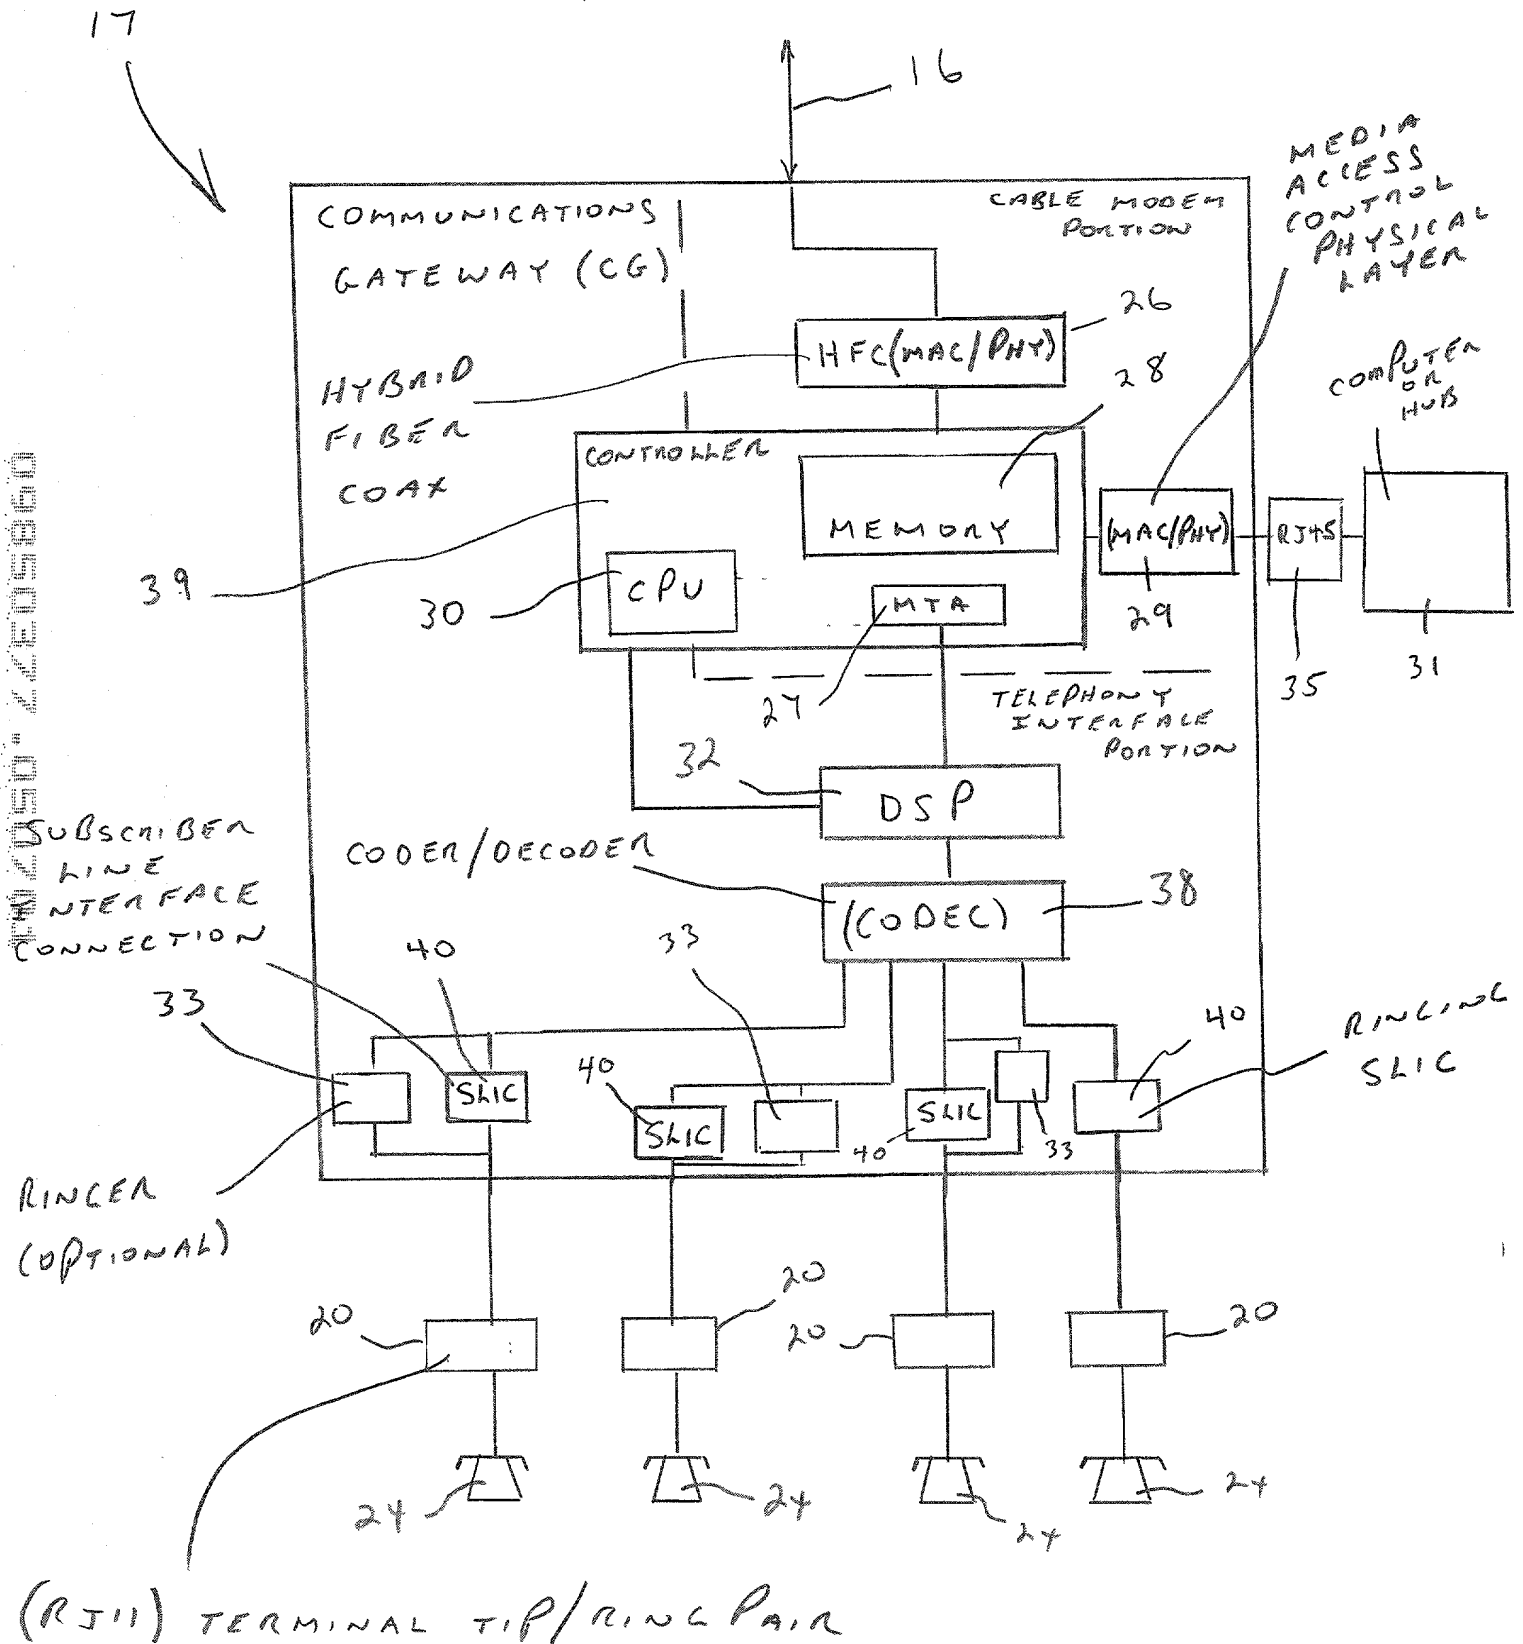 17
16
COMMUNICATIONS
GATEWAY (CG)
CABLE MODEM
PORTION
MEDIA
ACCESS
CONTROL
PHYSICAL
LAYER
26
HFC(MAC/PHY)
28
HYBRID
FIBER
COAX
COMPUTER
OR
HUB
CONTROLLER
MEMORY
(MAC/PHY)
RJ45
39
30
CPU
MTA
29
35
31
27
TELEPHONY
INTERFACE
PORTION
32
DSP
SUBSCRIBER
LINE
INTERFACE
CONNECTION
CODER/DECODER
(CODEC)
38
33
40
33
40
RINGING
SLIC
SLIC
40
SLIC
SLIC
40
33
RINGER
(OPTIONAL)
20
20
20
20
24
24
24
24
(RJ11) TERMINAL TIP/RING PAIR